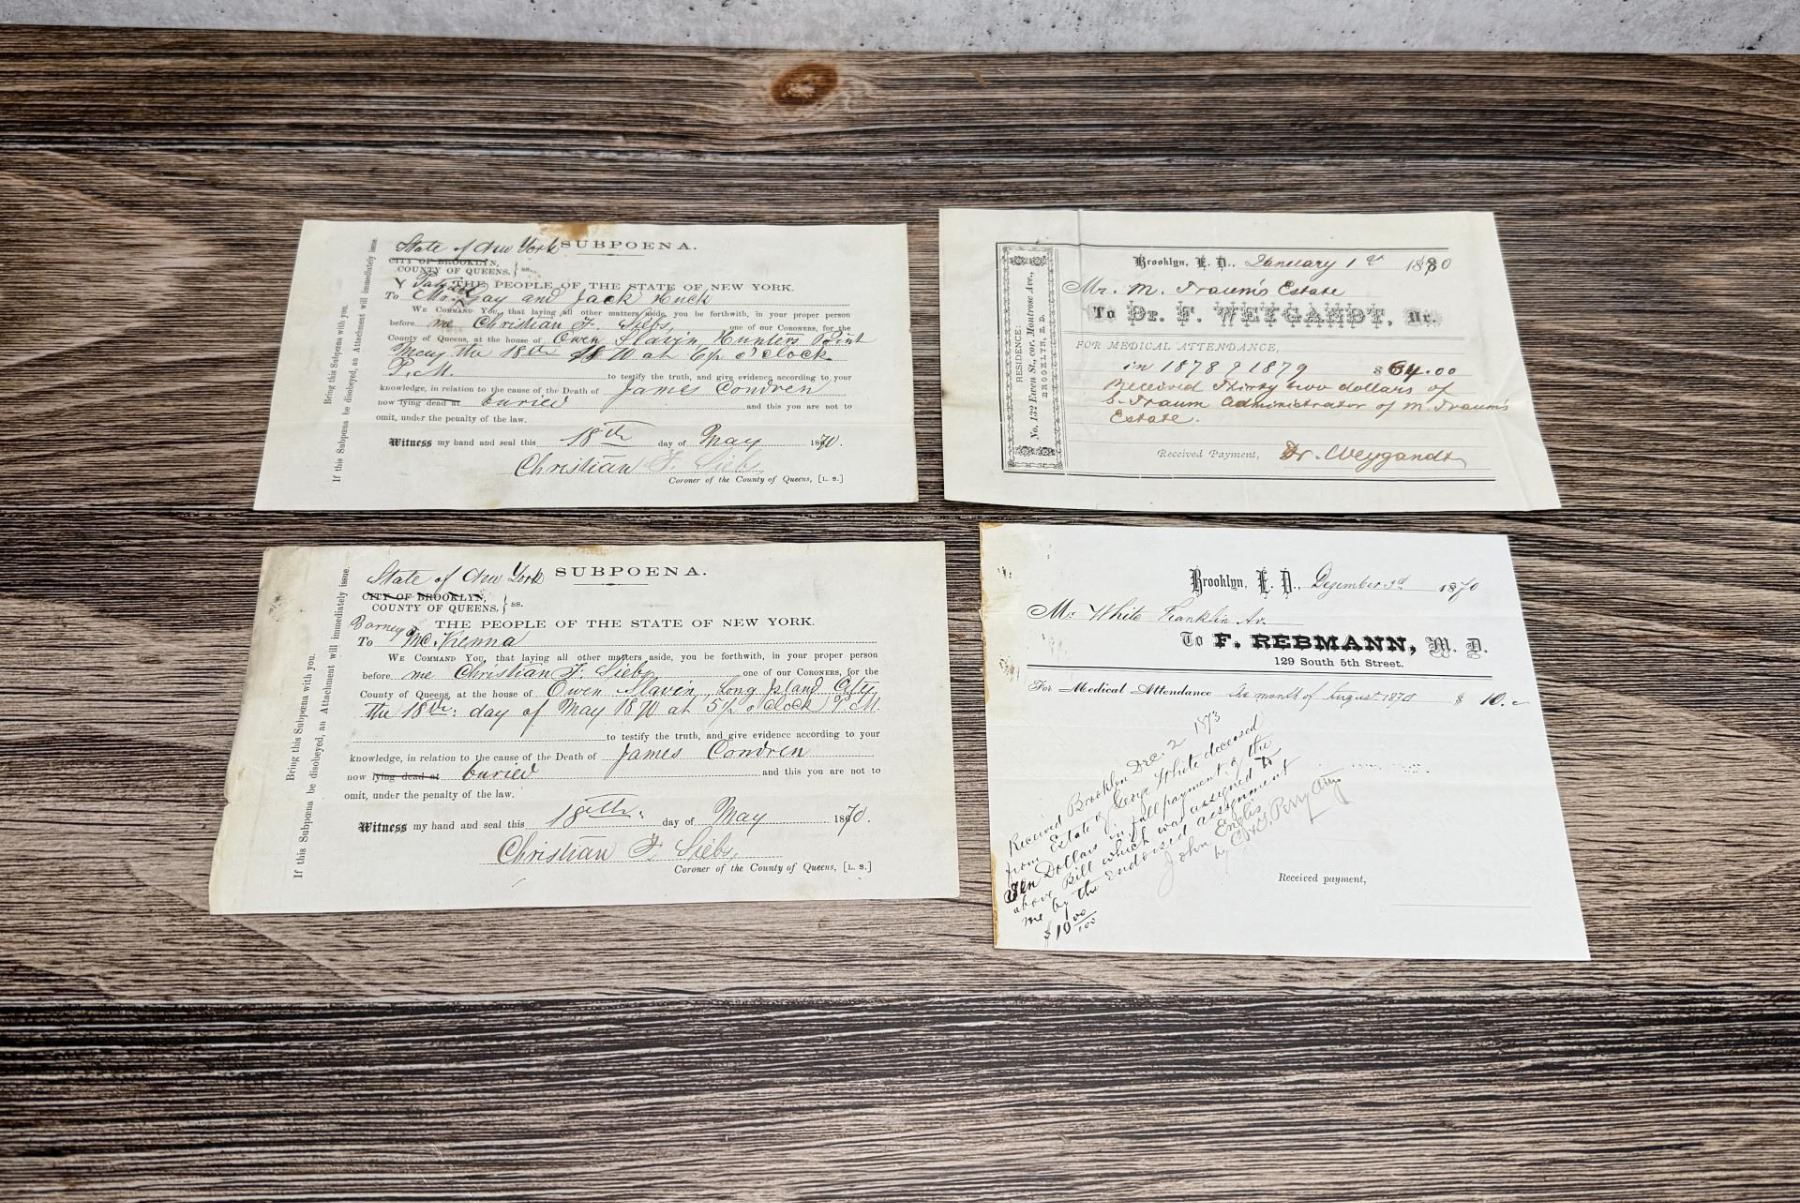 State of New York SUBPOENA.
CITY OF BROOKLYN,
COUNTY OF QUEENS, } ss.
THE PEOPLE OF THE STATE OF NEW YORK.
To Mr. Gay and Jack Huck
WE COMMAND YOU, that laying all other matters aside, you be forthwith, in your proper person
before me Christian F. Siebs, one of our CORONERS, for the
County of Queens, at the house of Owen Slavin, Hunters Point
May the 18th 1870 at 6½ o'clock
P.M. to testify the truth, and give evidence according to your
knowledge, in relation to the cause of the Death of James Condren
now lying dead at buried and this you are not to
omit, under the penalty of the law.
Witness my hand and seal this 18th day of May 1870.
Christian F. Siebs
Coroner of the County of Queens, [L. S.]
Bring this Subpœna with you.
If this Subpœna be disobeyed, an Attachment will immediately issue.
Brooklyn, E. D., January 1st 1880
Mr. M. Traum's Estate
To Dr. F. WEYGANDT, Dr.
FOR MEDICAL ATTENDANCE,
in 1878 & 1879 $64.00
Received Thirty two dollars of
S. Traum Administrator of M. Traum's
Estate.
Received Payment, Dr. Weygandt
RESIDENCE:
No. 132 Ewen St., cor. Montrose Ave.,
BROOKLYN, E. D.
State of New York SUBPOENA.
CITY OF BROOKLYN,
COUNTY OF QUEENS, } ss.
THE PEOPLE OF THE STATE OF NEW YORK.
To Barney McKenna
WE COMMAND YOU, that laying all other matters aside, you be forthwith, in your proper person
before me Christian F. Siebs, one of our CORONERS, for the
County of Queens, at the house of Owen Slavin, Long Island City
the 18th: day of May 1870 at 5½ o'clock P.M.
to testify the truth, and give evidence according to your
knowledge, in relation to the cause of the Death of James Condren
now lying dead at buried and this you are not to
omit, under the penalty of the law.
Witness my hand and seal this 18th: day of May 1870.
Christian F. Siebs,
Coroner of the County of Queens, [L. S.]
Bring this Subpœna with you.
If this Subpœna be disobeyed, an Attachment will immediately issue.
Brooklyn, E. D., Dezember 1870
Mr. White Franklin Av.
To F. REBMANN, M. D.
129 South 5th Street.
For Medical Attendance month of August 1870 $ 10.
Received Brooklyn Dec. 2 1873
from Estate of George White deceased
Ten Dollars in full payment of the
above Bill which was assigned to
me by the Endorsed assignment
$10 00/100 John English
by Perry
Received payment,